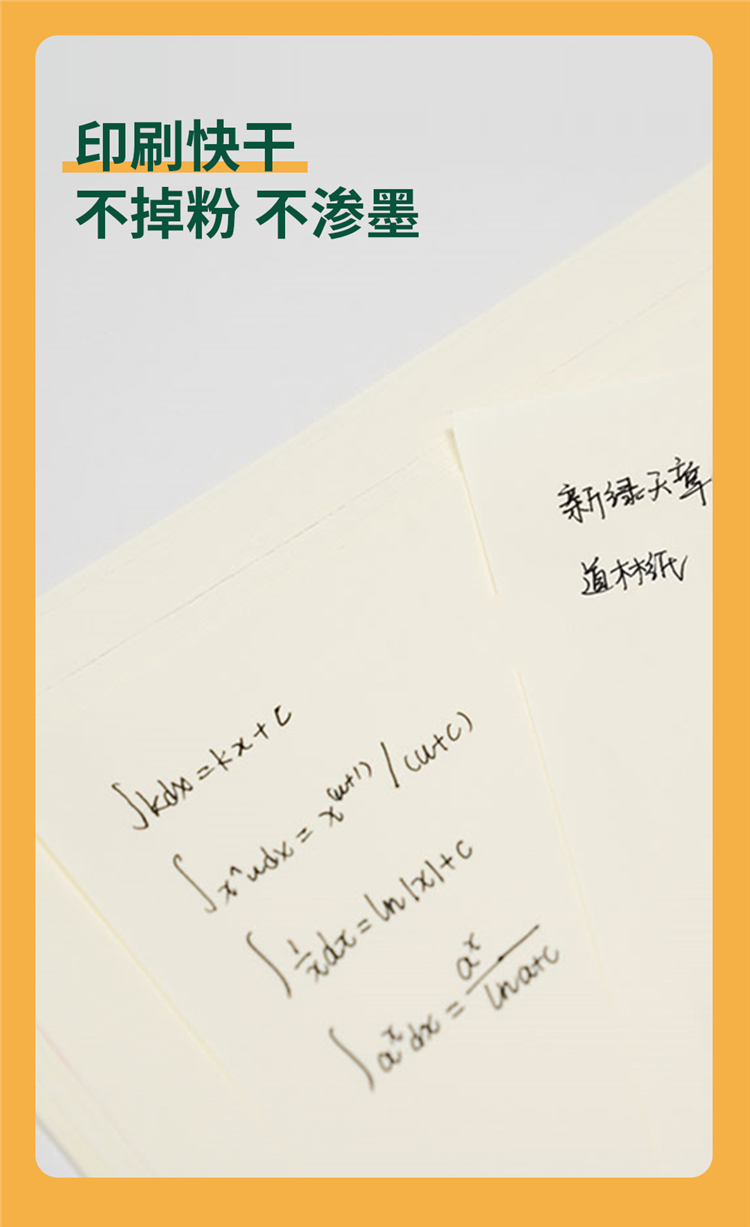 印刷快干
不掉粉 不渗墨
新绿天章
道林纸
∫kdx=kx+c
∫x^udx=x^(u+1)/(u+c)
∫1/x dx=ln|x|+c
∫a^x dx=a^x/lna+c